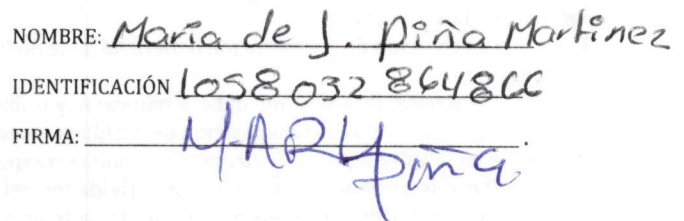 NOMBRE: María de J. Piña Martínez
IDENTIFICACIÓN 1058032864866
FIRMA: MARY Piña.